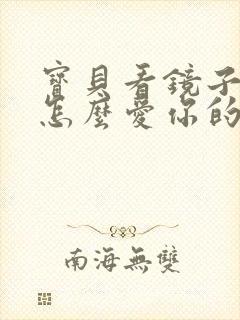 寶貝看鏡子
怎麼愛你的
南海無雙